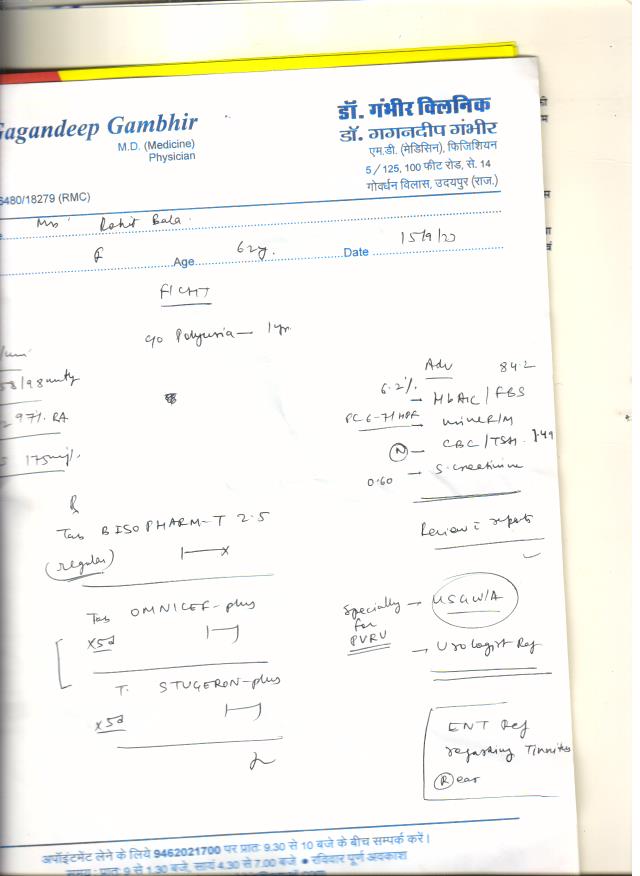 Gagandeep Gambhir
M.D. (Medicine)
Physician
6480/18279 (RMC)
डॉ. गंभीर क्लिनिक
डॉ. गगनदीप गंभीर
एम.डी. (मेडिसिन), फिजिशियन
5 / 125, 100 फीट रोड, से. 14
गोवर्धन विलास, उदयपुर (राज.)
Mrs Rohit Bala
F Age 62y. Date 15/9/22
c/o Polyuria — 1yr
/98 mmHg
97% RA
175mg/.
Adv 84.2
6.2% → HbA1C / FBS
PC 6-7/HPF urine R/M
(N) — CBC / TSH 1.49
0.60 → S. creatinine
Review c reports
Rx
Tab BISOPHARM-T 2.5
(regular)
Tab OMNICEF-plus
x5d
T. STUGERON-plus
x5d
Specially for PVRU → USG W/A
→ Urologist Ref
ENT Ref
regarding Tinnitus
(R) ear
अपॉइंटमेंट लेने के लिये 9462021700 पर प्रातः 9.30 से 10 बजे के बीच सम्पर्क करें।
समय : प्रातः 9 से 1.30 बजे, सायं 4.30 से 7.00 बजे ● रविवार पूर्ण अवकाश